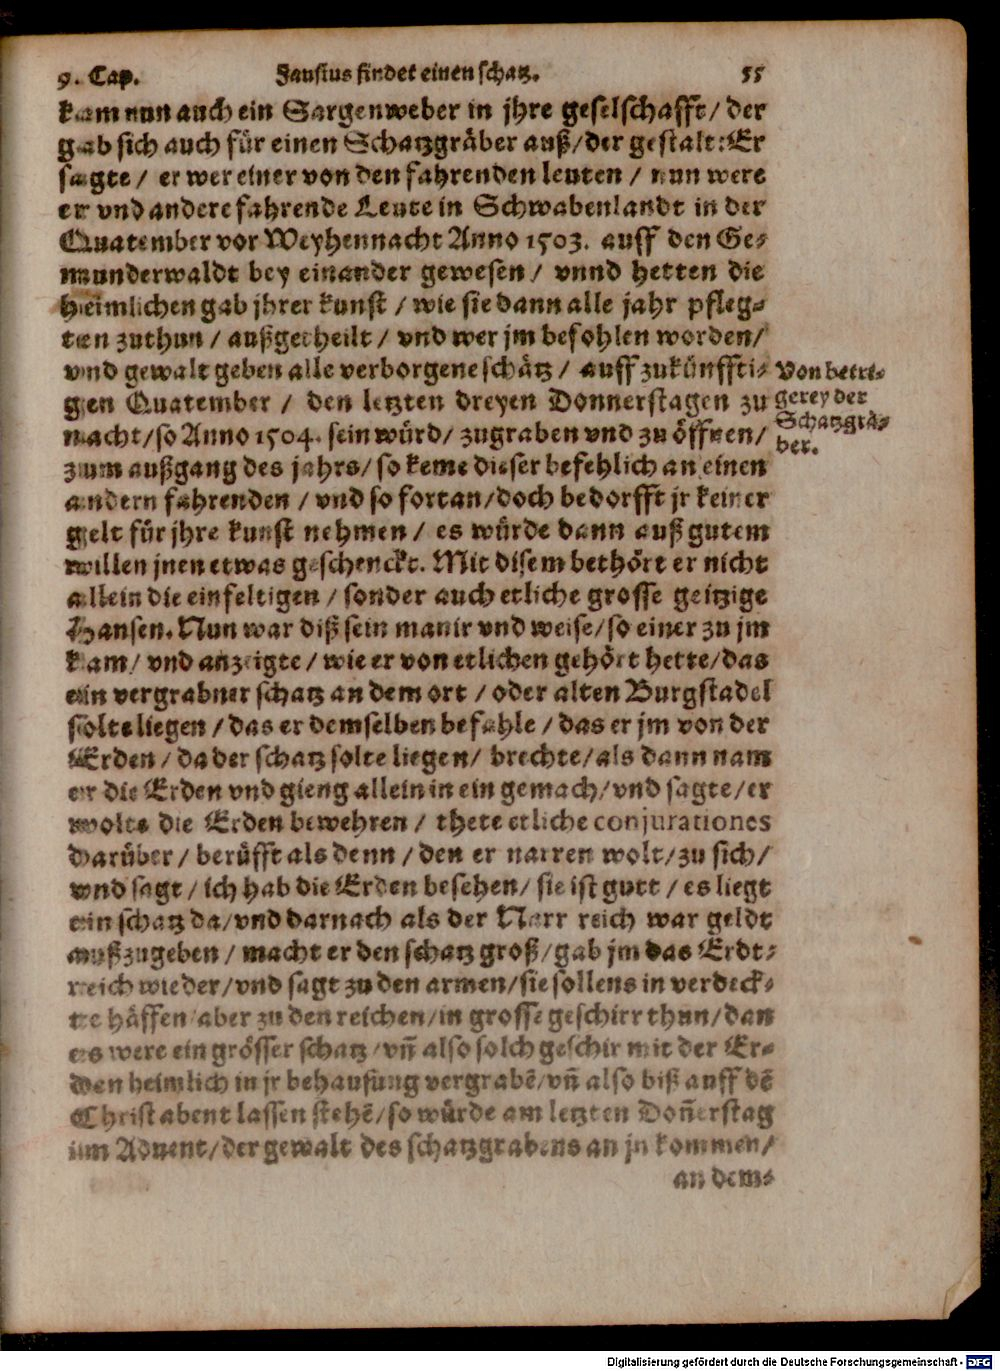 9. Cap. Faustus findet einen schatz. 55
kam nun auch ein Sargenweber in jhre geselschafft/ der
gab sich auch für einen Schatzgräber auß/ der gestalt: Er
sagte/ er wer einer von den fahrenden leuten/ nun were
er vnd andere fahrende Leute in Schwabenlandt in der
Quatember vor Weyhennacht Anno 1503. auff den Ge-
munderwaldt bey einander gewesen/ vnnd hetten die
heimlichen gab jhrer kunst/ wie sie dann alle jahr pfleg-
ten zuthun/ außgetheilt/ vnd wer jm befohlen worden/
vnd gewalt geben alle verborgene schätz/ auff zukünffti-
gen Quatember/ den letzten dreyen Donnerstagen zu
Von betri-
gerey der
Schatzgrä-
ber.
nacht/ so Anno 1504. sein würd/ zugraben vnd zu öffnen/
zum außgang des jahrs/ so keme dieser befehlich an einen
andern fahrenden/ vnd so fortan/ doch bedorfft jr keiner
gelt für jhre kunst nehmen/ es würde dann auß gutem
willen jnen etwas geschenckt. Mit disem bethört er nicht
allein die einfeltigen/ sonder auch etliche grosse geitzige
Hansen. Nun war diß sein manir vnd weise/ so einer zu jm
kam/ vnd anzeigte/ wie er von etlichen gehört hette/ das
ein vergrabner schatz an dem ort/ oder alten Burgstadel
solte liegen/ das er demselben befahle/ das er jm von der
Erden/ da der schatz solte liegen/ brechte/ als dann nam
er die Erden vnd gieng allein in ein gemach/ vnd sagte/ er
wolte die Erden bewehren/ thete etliche conjurationes
darüber/ berüfft als denn/ den er narren wolt/ zu sich/
vnd sagt/ ich hab die Erden besehen/ sie ist gutt/ es liegt
ein schatz da/ vnd darnach als der Narr reich war geldt
außzugeben/ macht er den schatz groß/ gab jm das Erdt-
reich wieder/ vnd sagt zu den armen/ sie sollens in verdeck-
te häffen/ aber zu den reichen/ in grosse geschirr thun/ dan
es were ein grösser schatz/ vñ also solch geschir mit der Er-
den heimlich in jr behausung vergrabē/ vñ also biß auff dē
Christabent lassen stehē/ so würde am letzten Doñerstag
im Aduent/ der gewalt des schatzgrabens an jn kommen/
an dem-
Digitalisierung gefördert durch die Deutsche Forschungsgemeinschaft - DFG